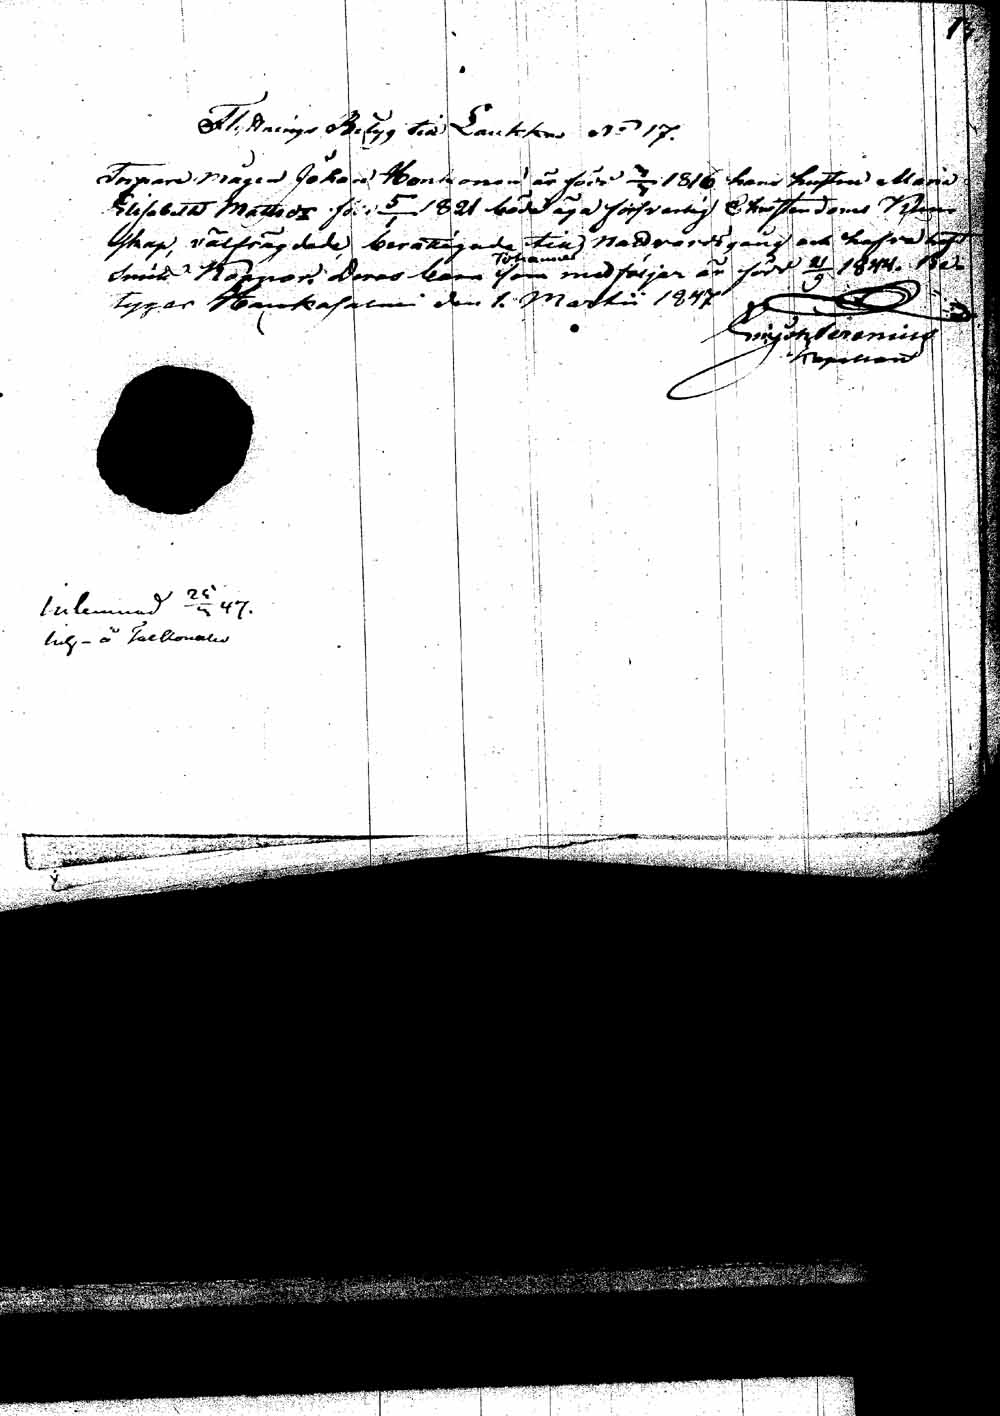 Flyttnings Betyg till Laukkas No 17.
Torpare mågen Johan Honkonen är född 1816 hans hustru Maria
Elisabeth Mattsdr född 5/ 1821 både äga försvarlig Christendoms Kun-
skap, välfrägdade, berättigade till nattvardsgång och hafva haft
Johannes
Smitt Koppor. Deras barn som medföljer är född 21/9 1844. Be-
tygar Hankasalmi den 1. Martii 1847
Kapellan
Inlemnad 25/ 47.